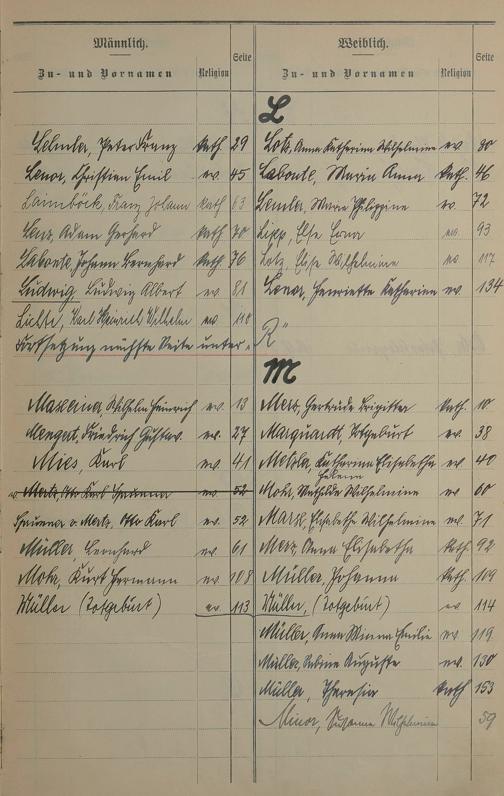 Männlich.
Zu- und Vornamen Religion Seite
Weiblich.
Zu- und Vornamen Religion Seite
L
Peter Franz kath. 29
Lenor, Christian Emil ev. 45
Laimböck, Franz Johann kath 63
Adam Gerhard kath 70
Labonte, Johann Bernhard kath. 76
Ludwig Ludwig Albert ev. 81
Karl Heinrich Wilhelm ev. 110
Fortsetzung nächste Seite unter „R"
Lotz, Anna Katharina Wilhelmine ev 30
Labonte, Maria Anna kath. 46
Maria Philippine ev. 72
Lipp, Else Erna ev. 93
Lotz, Elise Wilhelmine ev 117
Henriette Katharina ev. 134
M
Wilhelm Heinrich ev. 13
Mengert, Friedrich Gustav. ev. 27
Mies, Karl ev. 41
Mertz, Otto Karl ev 52
Mertz, Otto Karl ev. 52
Müller, Bernhard ev 61
Kurt Hermann ev 108
Müller (Totgeburt) ev. 113
Gertrude Brigitter kath. 10
Marquardt, Totgeburt ev. 38
Katharina Elisabetha ev 40
Helena
Mathilde Wilhelmine ev 60
Elisabetha Wilhelmine ev. 71
Merz, Anna Elisabetha kath. 92
Müller, Johanna kath. 109
Müller, (Totgebürt) ev 114
Müller, Anna Minna Emilie ev. 119
Müller, Sabine Auguste ev. 130
Müller, Theresia kath 153
Minor, Susanna Wilhelmine 59